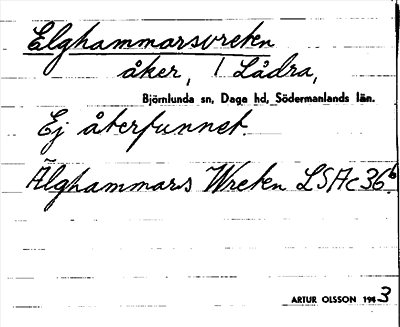 Elghammarsvreten
åker, 1 Lådra,
Björnlunda sn, Daga hd, Södermanlands län.
Ej återfunnet.
Älghammars Wreten LSAc 36.b
ARTUR OLSSON 1943